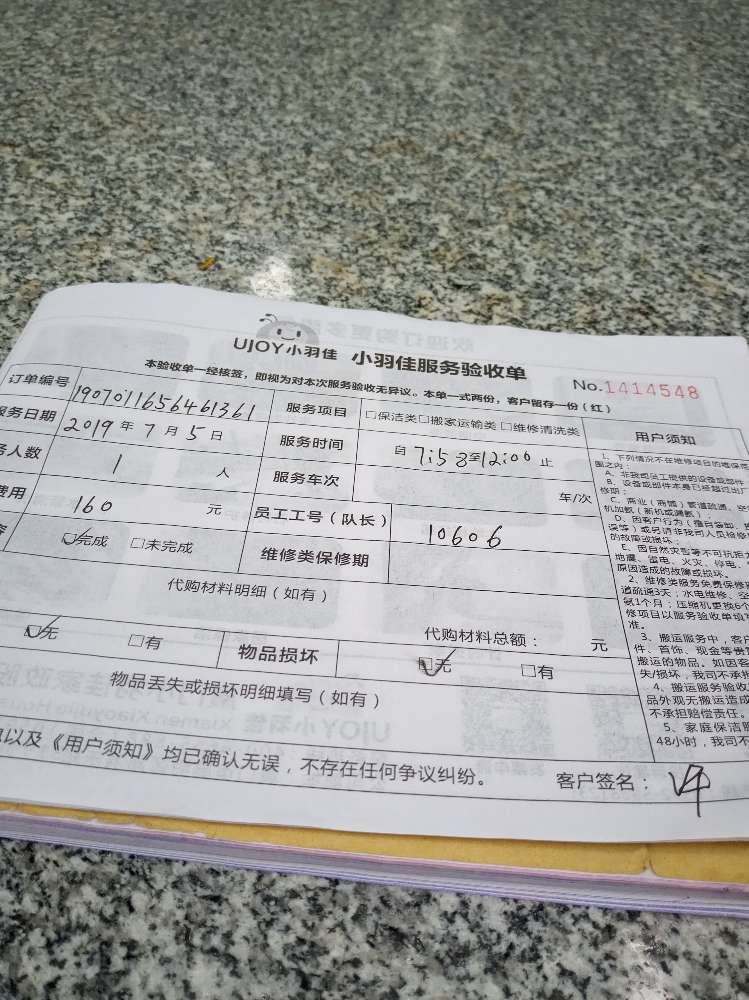 UJOY小羽佳 小羽佳服务验收单
No.1414548
本验收单一经核签，即视为对本次服务验收无异议。本单一式两份，客户留存一份（红）
订单编号 1907011656461361 服务项目 □保洁类□搬家运输类□维修清洗类 用户须知
服务日期 2019年7月5日 服务时间 自7:58至12:00止
务人数 1 人 服务车次 车/次
费用 160 元 员工工号（队长） 10606
☑完成 □未完成 维修类保修期
代购材料明细（如有）
代购材料总额： 元
☑无 □有 物品损坏 ☑无 □有
物品丢失或损坏明细填写（如有）
以及《用户须知》均已确认无误，不存在任何争议纠纷。 客户签名：
1、下列情况不在维修项目的增保范
围之内：
A、非我司员工提供的设备或部件
B、设备或部件本身已经超过出厂
修期；
C、商业（商铺）管道疏通，空
机加氨（新机或漏氨）
D、因客户行为（擅自装卸、
误等）或另请非我司人员检修
的故障或损坏；
E、因自然灾害等不可抗拒力
地震、雷电、火灾、停电、
原因造成的故障或损坏。
2、维修类服务免费保修
道疏通3天；水电维修、空
氨1个月；压缩机更换6个
修项目以服务验收单填
准。
3、搬运服务中，客户
件、首饰、现金等贵
搬运的物品。如因客
失/损坏，我司不承担
4、搬运服务验收
品外观无搬运造成
不承担赔偿责任。
5、家庭保洁服
48小时，我司不